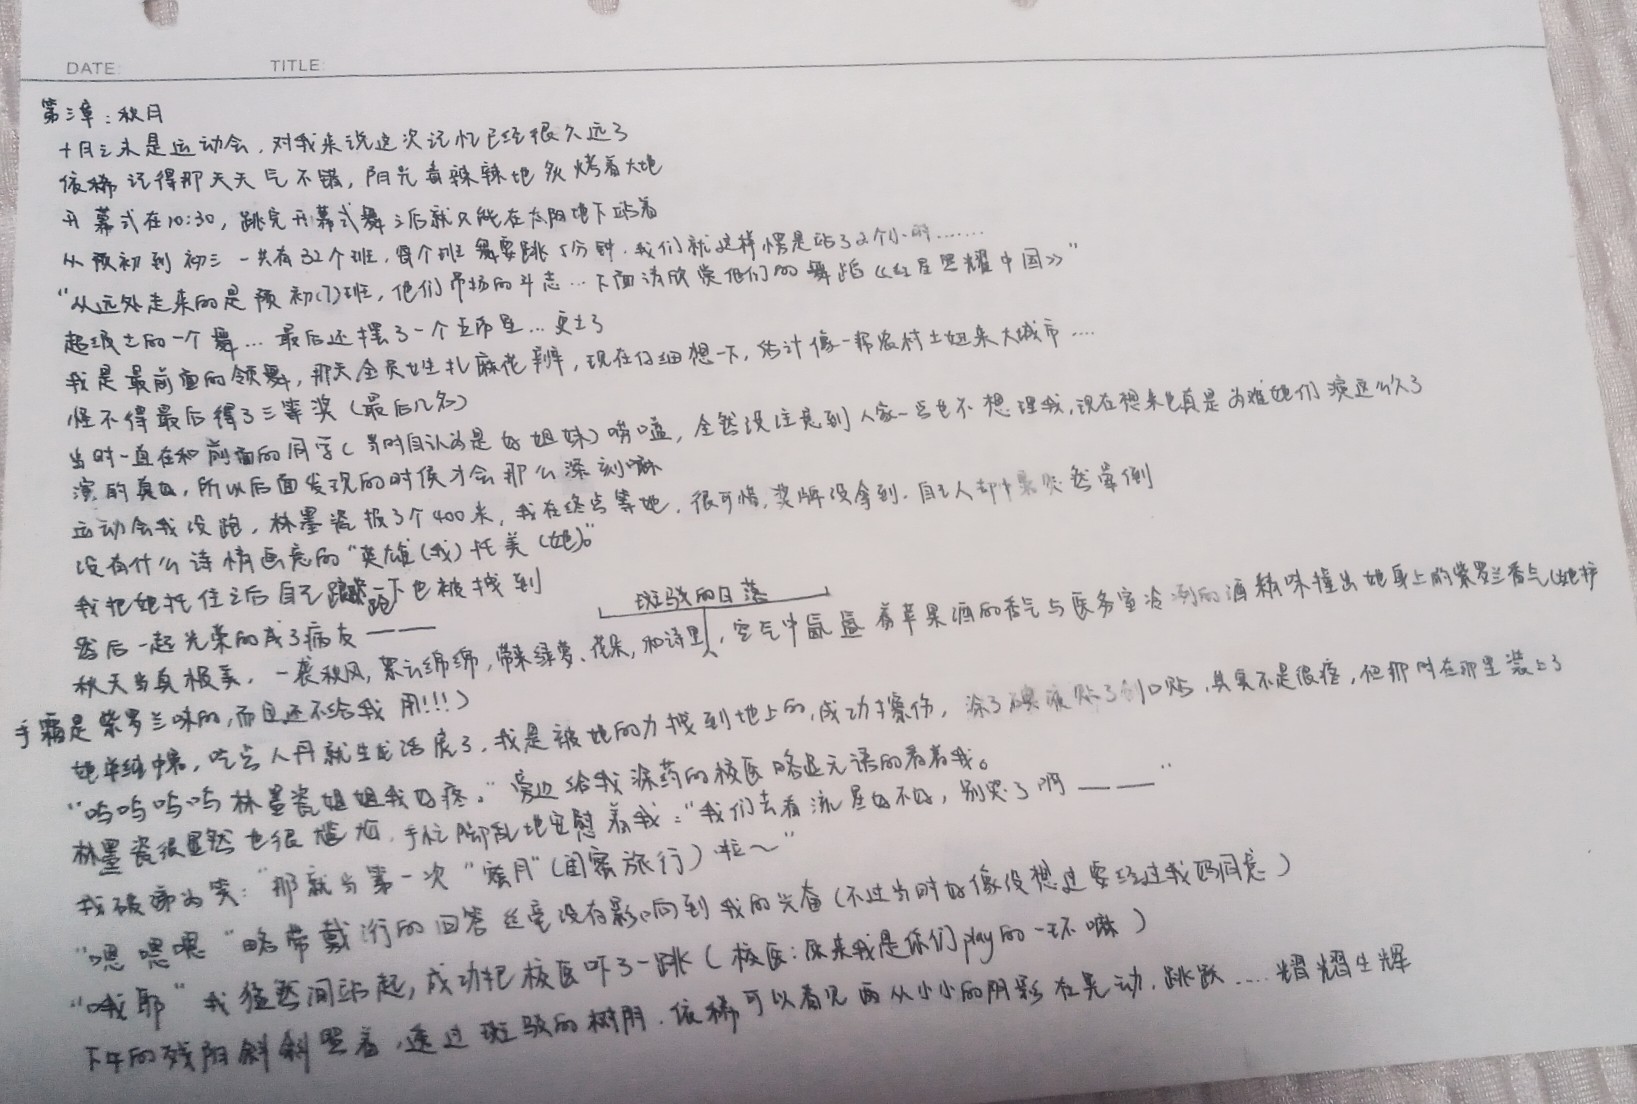 DATE: TITLE:
第三章：秋月
十月之末是运动会，对我来说这次记忆已经很久远了
依稀记得那天天气不错，阳光毒辣辣地炙烤着大地
开幕式在10:30，跳完开幕式舞之后就只能在太阳地下站着
从预初到初三一共有32个班，每个班舞要跳5分钟，我们就这样愣是站了2个小时……
“从远处走来的是预初(7)班，他们昂扬的斗志…下面请欣赏他们的舞蹈《红星照耀中国》”
超级土的一个舞…最后还摆了一个五角星…更土了
我是最前面的领舞，那天全员女生扎麻花辫，现在仔细想一下，估计像一帮农村土妞来大城市….
怪不得最后得了三等奖（最后几名）
当时一直在和前面的同学（当时自认为是好姐妹）唠嗑，全然没注意到人家一点也不想理我，现在想来也真是为难她们演这么久了
演的真好，所以后面发现的时候才会那么深刻嘛
运动会我没跑，林墨瓷报了个400米，我在终点等她，很可惜，奖牌没拿到，自己人却中暑突然晕倒
没有什么诗情画意的“英雄（我）托美（她）。”
我把她托住之后自己踉跄一下也被拽到
然后一起光荣的成了病友——
斑驳的日落
秋天当真极美，一袭秋风，累云绵绵，带来绿萝、花朵，和诗里，空气中氤氲着苹果酒的香气与医务室冷冽的酒精味撞出她身上的紫罗兰香气（她护
手霜是紫罗兰味的，而且还不给我用!!!）
她单纯中暑，吃点人丹就生龙活虎了，我是被她的力拽到地上的，成功擦伤，涂了碘液贴了创口贴，其实不是很疼，但那时在那里装上了
“呜呜呜呜林墨瓷姐姐我好疼。”旁边给我涂药的校医略显无语的看着我。
林墨瓷很显然也很尴尬，手忙脚乱地安慰着我：“我们去看流星好不好，别哭了啊——”
我破涕为笑：“那就当第一次“蜜月”（闺蜜旅行）啦～”
“嗯嗯嗯”略带敷衍的回答丝毫没有影响到我的兴奋（不过当时好像没想过要经过我妈同意）
“哦耶”我猛然间站起，成功把校医吓了一跳（校医：原来我是你们play的一环嘛）
下午的残阳斜斜照着，透过斑驳的树阴，依稀可以看见两从小小的阴影在晃动，跳跃….熠熠生辉